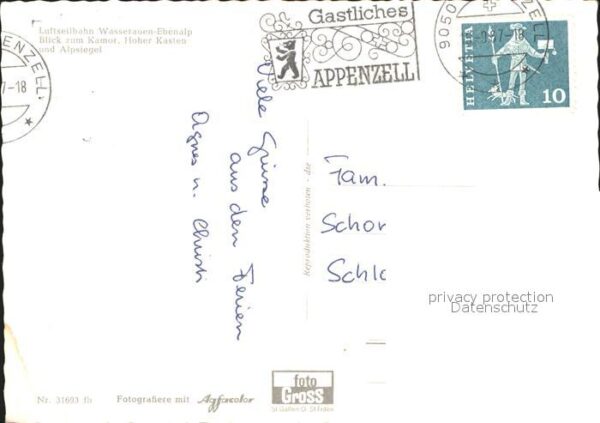 Luftseilbahn Wasserauen-Ebenalp
Blick zum Kamor, Hoher Kasten
und Alpsiegel
Gastliches
APPENZELL
9050
HELVETIA
10
PENZELL
7-18
Viele Grüsse
aus den Ferien
Agnes u. Christi
Reproduktion verboten - die
Fam.
Schor
Schle
privacy protection
Datenschutz
Nr. 31693 fb
Fotografiere mit Agfacolor
foto
Gross
St Gallen